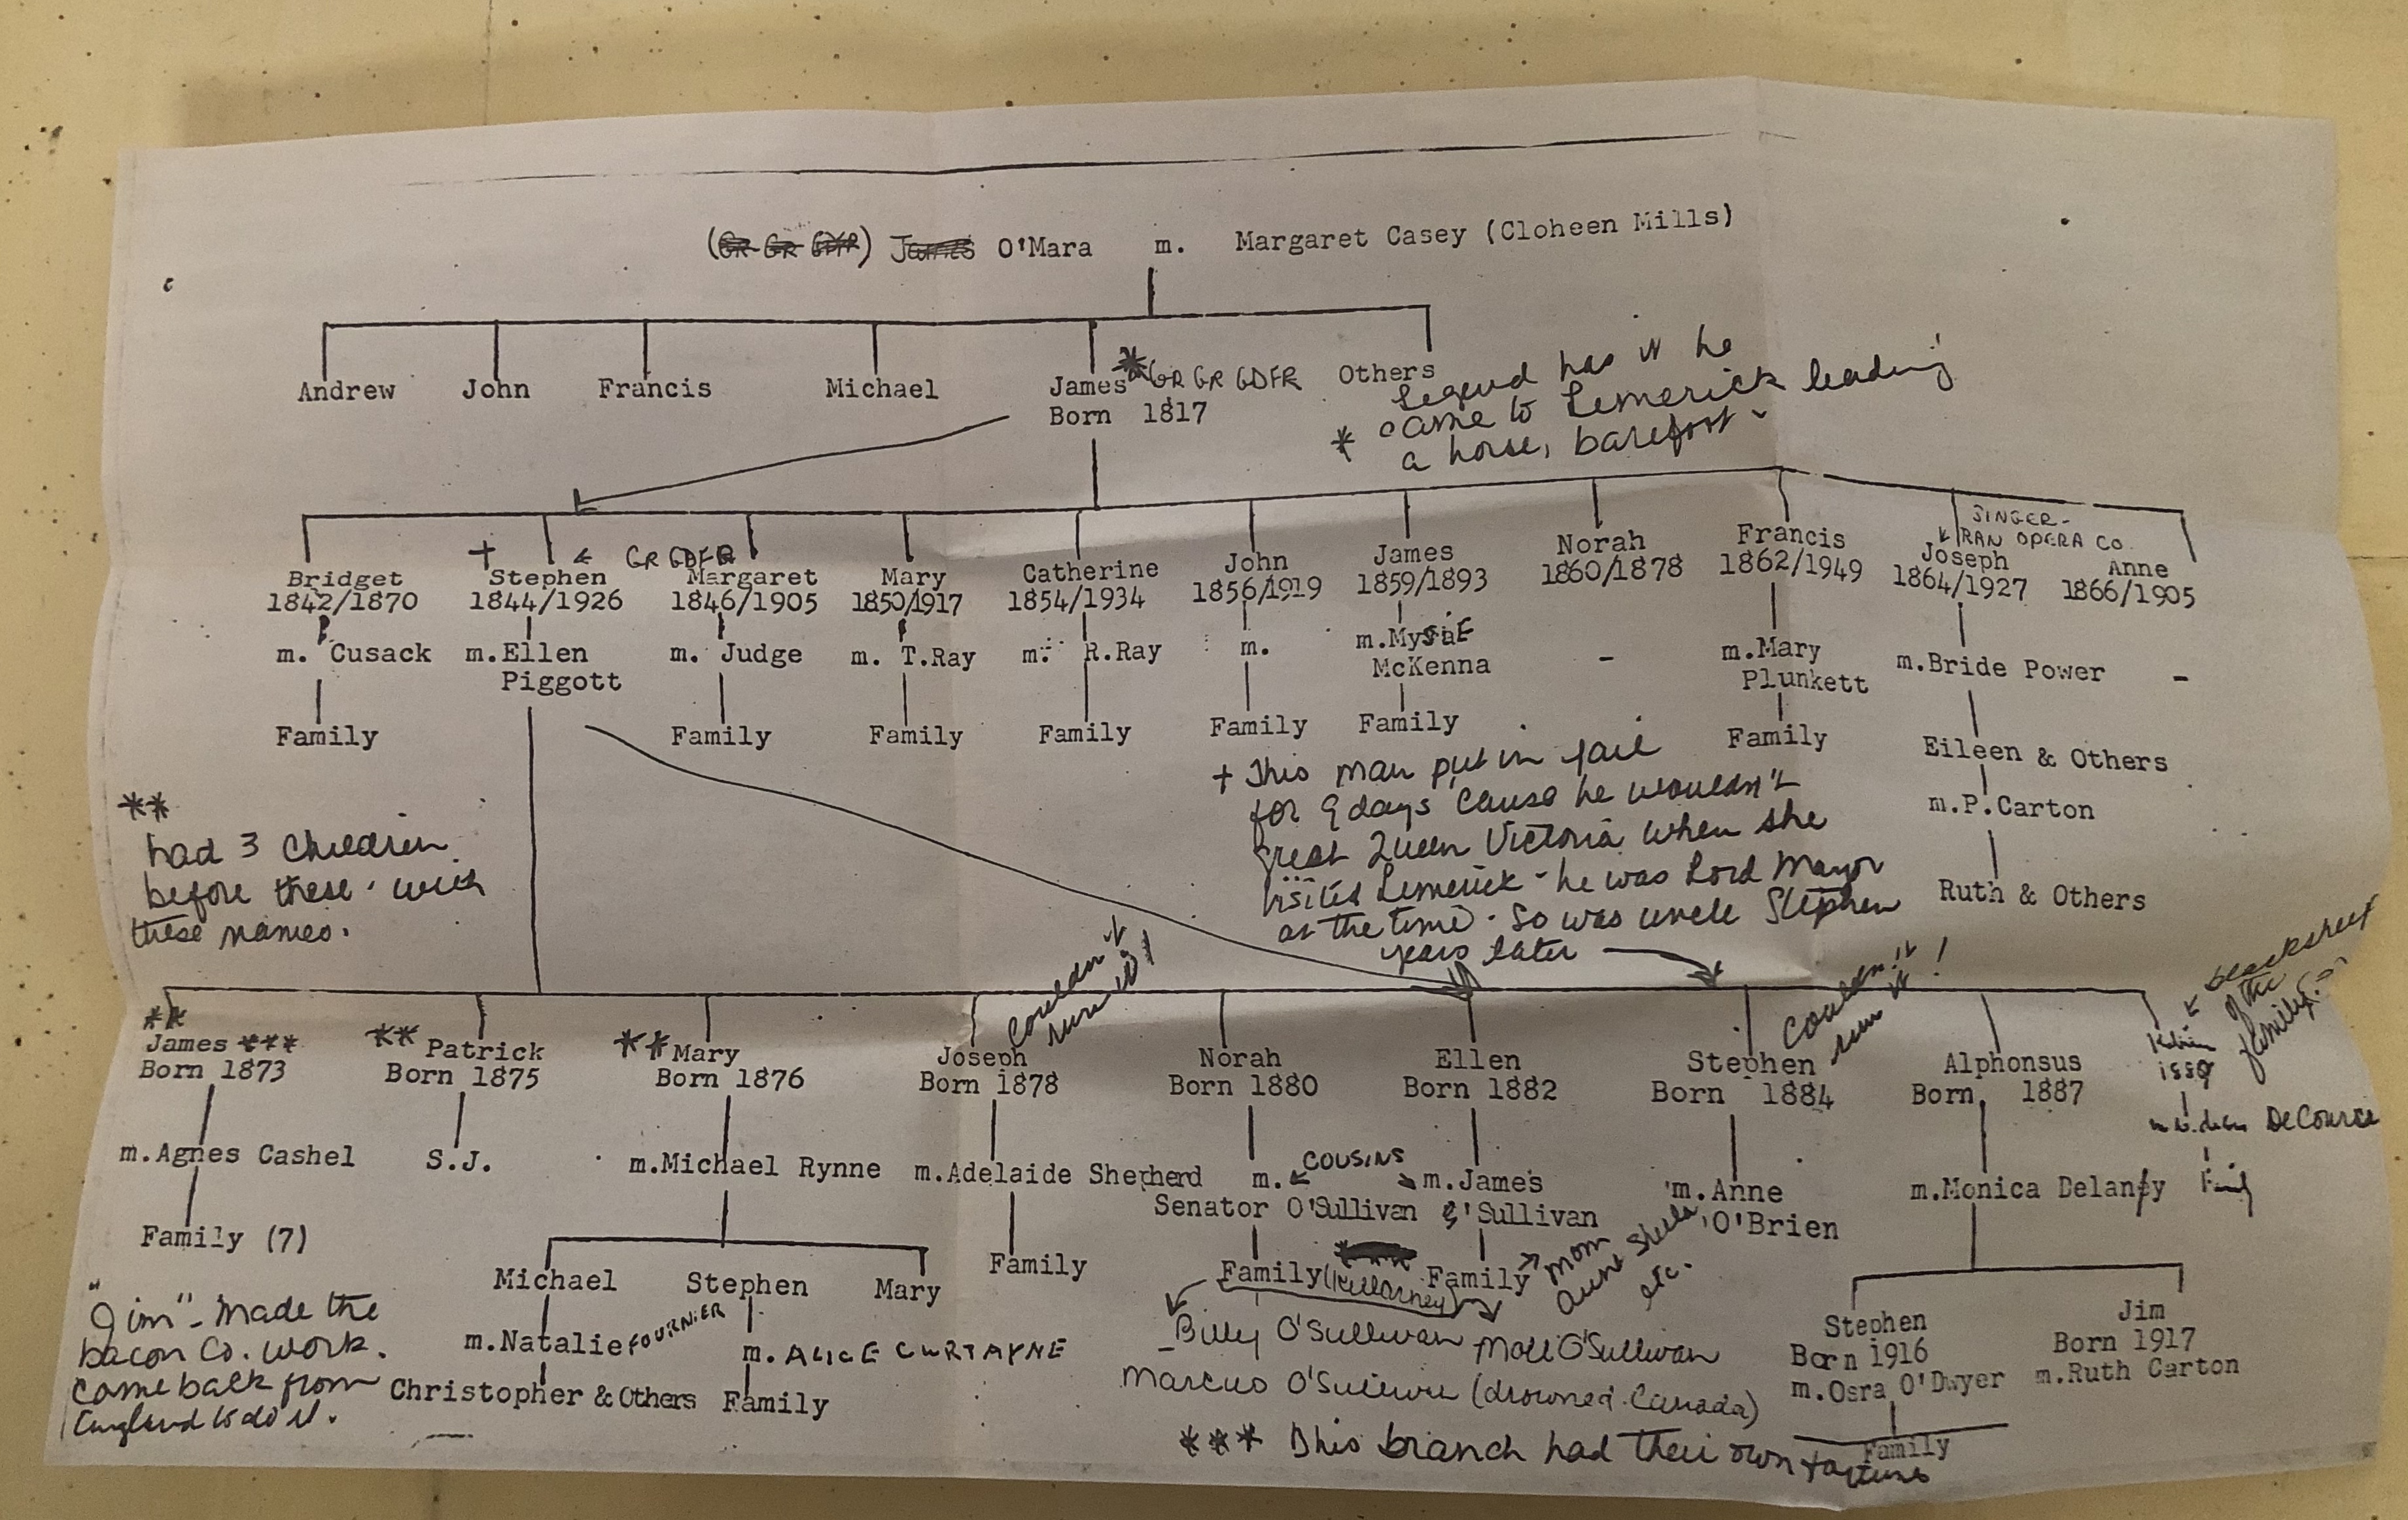 (GR GR GDFR) James O'Mara m. Margaret Casey (Cloheen Mills)
Andrew John Francis Michael James * GR GR GDFR Others
Born 1817
* Legend has it he
came to Limerick leading
a horse, barefoot
SINGER-
RAN OPERA CO.
+ ← GR GDFR
Bridget Stephen Margaret Mary Catherine John James Norah Francis Joseph Anne
1842/1870 1844/1926 1846/1905 1850/1917 1854/1934 1856/1919 1859/1893 1860/1878 1862/1949 1864/1927 1866/1905
m. Cusack m.Ellen m. Judge m. T.Ray m. R.Ray m. m.Mysie - m.Mary m.Bride Power -
Piggott McKenna Plunkett
Family Family Family Family Family Family Family Eileen & Others
m.P.Carton
Ruth & Others
+ This man put in jail
for 9 days 'cause he wouldn't
greet Queen Victoria when she
visited Limerick - he was Lord Mayor
at the time. So was uncle Stephen
years later
**
had 3 children
before these. with
these names.
couldn't
run it!
couldn't
run it!
blacksheep
of the
family.
** James *** ** Patrick ** Mary Joseph Norah Ellen Stephen Alphonsus
Born 1873 Born 1875 Born 1876 Born 1878 Born 1880 Born 1882 Born 1884 Born 1887 1889
m. DeCource
m.Agnes Cashel S.J. m.Michael Rynne m.Adelaide Shepherd m. ← COUSINS → m.James m.Anne m.Monica Delaney Family
Senator O'Sullivan O'Sullivan O'Brien
Family (7) Family Family (Killarney) Family → Mom
Aunt Sheila
etc.
Michael Stephen Mary
m.Natalie FOURNIER m. ALICE CURTAYNE
Christopher & Others Family
"Jim" - made the
bacon Co. work.
Came back from
England to do it.
Billy O'Sullivan Moll O'Sullivan
Marcus O'Sullivan (drowned. Canada)
Stephen Jim
Born 1916 Born 1917
m.Osra O'Dwyer m.Ruth Carton
Family
*** This branch had their own factories